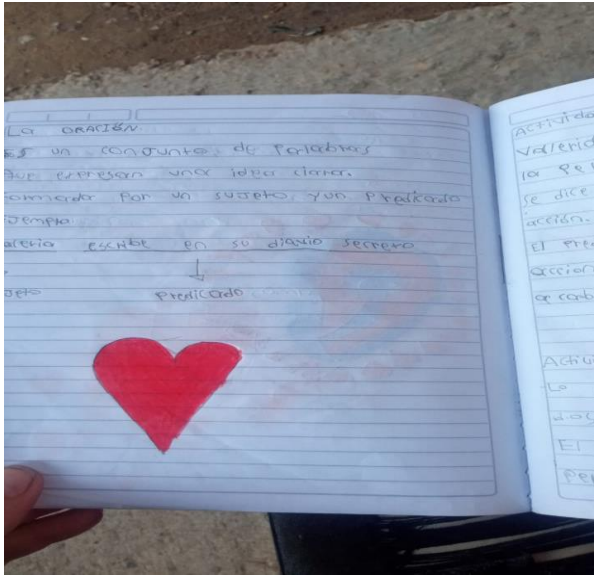 La ORACIÓN
es un conjunto de Palabras
que expresan una idea clara.
ormada Por un sujeto y un Predicado
jemplo
aleria escribe en su diario secreto
jeto Predicado
Activida
Valerid
la Pe
se dice
acción.
El Pred
accion
a cab
Activi
La
El
Per